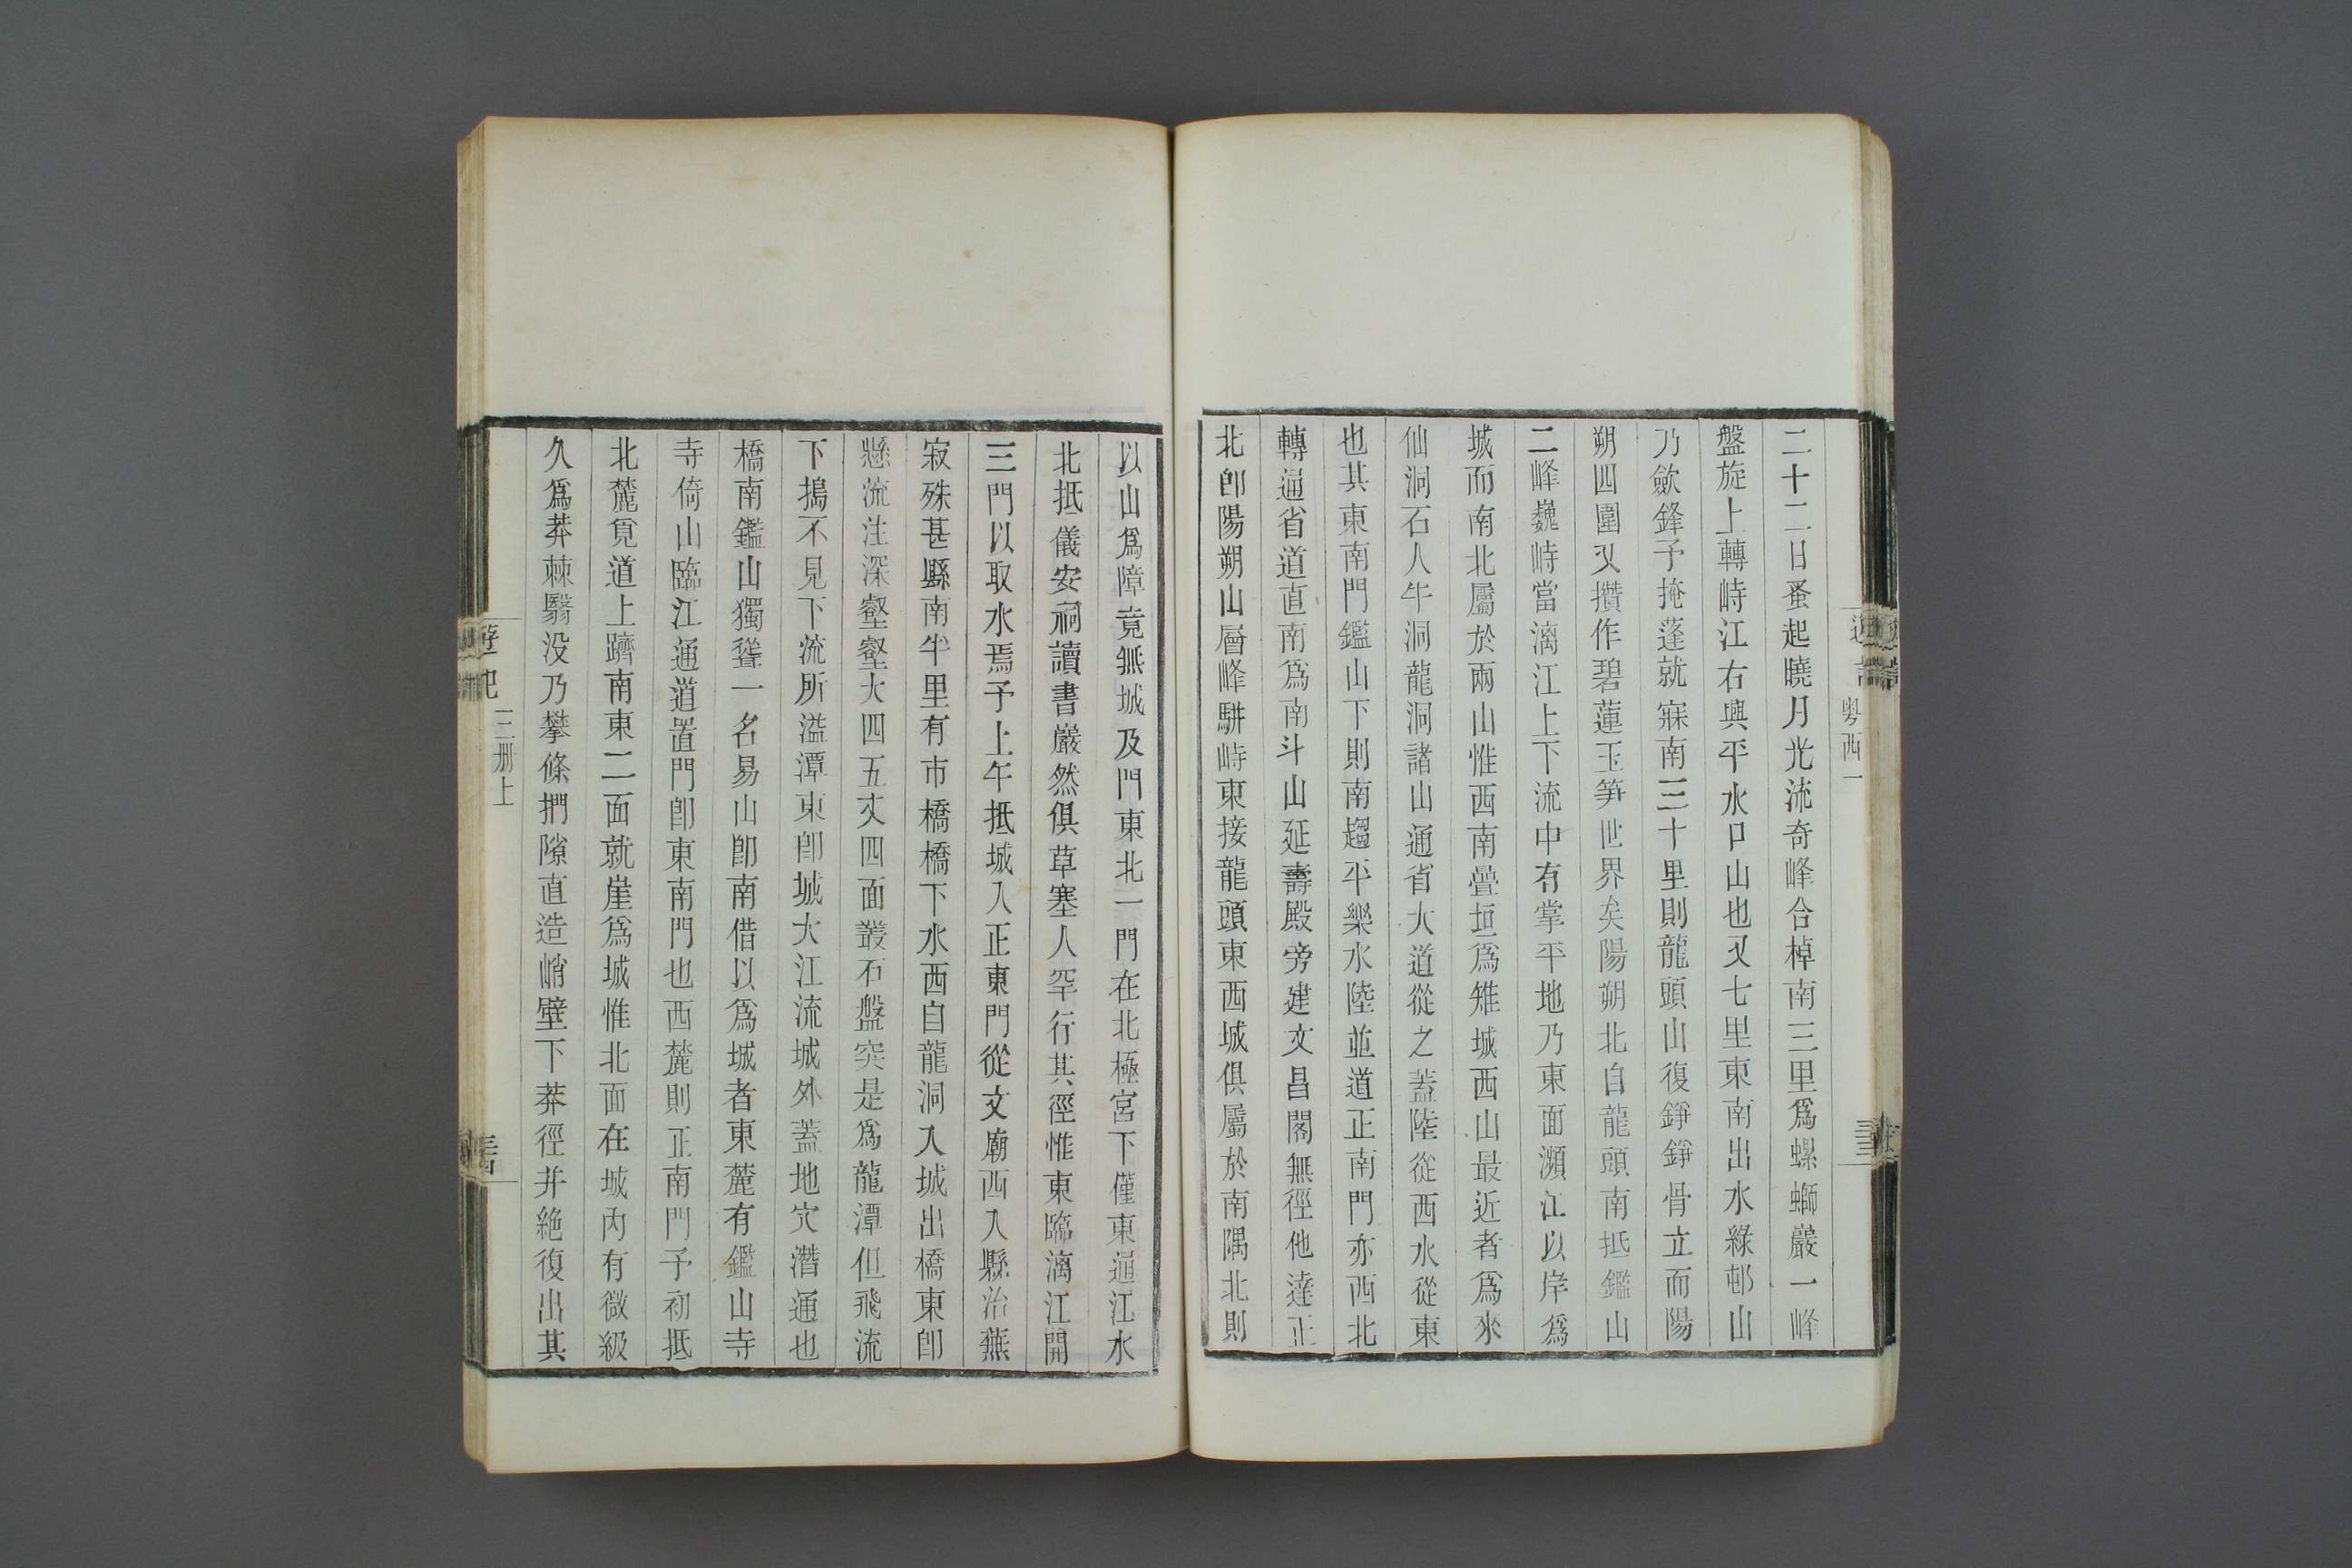 二十二日蚤起曉月光流奇峰合棹南三里爲螺螄巖一峰
盤旋上轉峙江右興平水口山也又七里東南出水綠邨山
乃歛鋒予掩蓬就寐南三十里則龍頭山復錚錚骨立而陽
朔四圍又攢作碧蓮玉筍世界矣陽朔北自龍頭南抵鑑山
二峰巍峙當漓江上下流中有掌平地乃東面瀕江以岸爲
城而南北屬於兩山惟西南疊垣爲雉城西山最近者爲來
仙洞石人牛洞龍洞諸山通省大道從之蓋陸從西水從東
也其東南門鑑山下則南趨平樂水陸並道正南門亦西北
轉通省道直南爲南斗山延壽殿旁建文昌閣無徑他達正
北卽陽朔山層峰駢峙東接龍頭東西城俱屬於南隅北則
粵西一
以山爲障竟無城及門東北一門在北極宮下僅東通江水
北抵儀安祠讀書巖然俱草塞人罕行其徑惟東臨漓江開
三門以取水焉予上午抵城入正東門從文廟西入縣治蕪
寂殊甚縣南半里有市橋橋下水西自龍洞入城出橋東卽
懸流注深壑壑大四五丈四面叢石盤突是爲龍潭但飛流
下搗不見下流所溢潭東卽城大江流城外蓋地穴潛通也
橋南鑑山獨聳一名易山卽南借以爲城者東麓有鑑山寺
寺倚山臨江通道置門卽東南門也西麓則正南門予初抵
北麓覓道上躋南東二面就崖爲城惟北面在城內有微級
久爲莽棘翳没乃攀條捫隙直造峭壁下莽徑并絶復出其
遊記
三册上